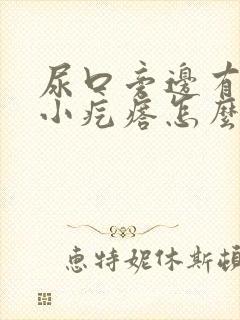 尿口旁邊有
小疙瘩怎麼
惠特妮休斯頓